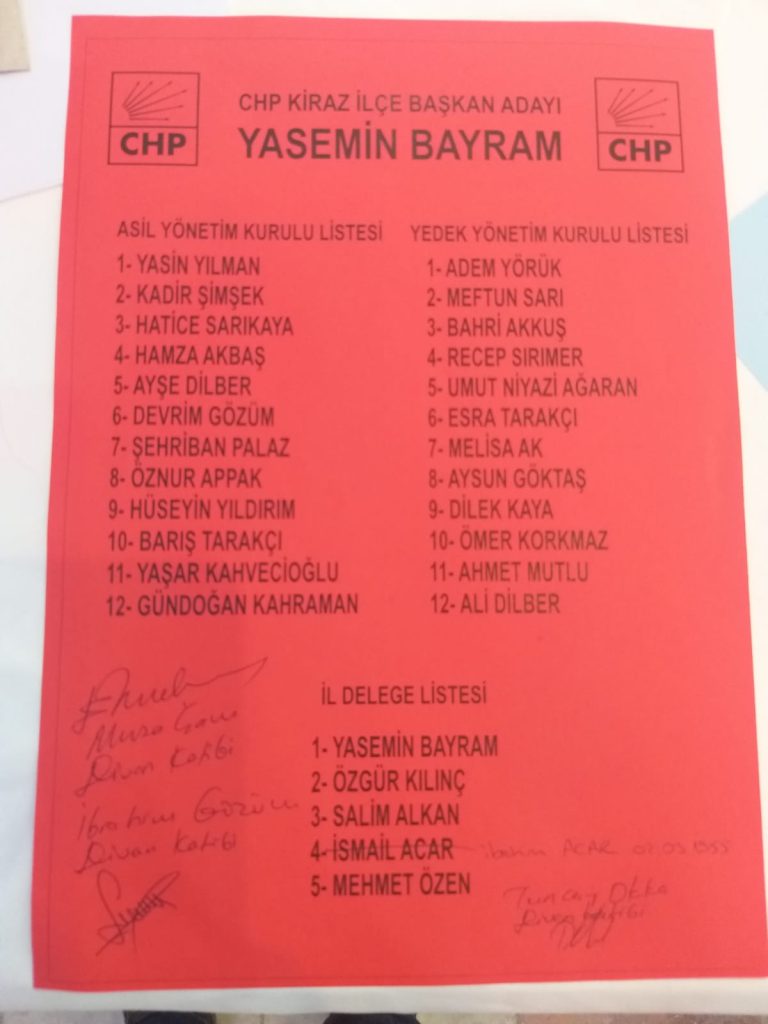 CHP
CHP KİRAZ İLÇE BAŞKAN ADAYI
YASEMİN BAYRAM
CHP
ASİL YÖNETİM KURULU LİSTESİ
1- YASİN YILMAN
2- KADİR ŞİMŞEK
3- HATİCE SARIKAYA
4- HAMZA AKBAŞ
5- AYŞE DİLBER
6- DEVRİM GÖZÜM
7- ŞEHRİBAN PALAZ
8- ÖZNUR APPAK
9- HÜSEYİN YILDIRIM
10- BARIŞ TARAKÇI
11- YAŞAR KAHVECİOĞLU
12- GÜNDOĞAN KAHRAMAN
YEDEK YÖNETİM KURULU LİSTESİ
1- ADEM YÖRÜK
2- MEFTUN SARI
3- BAHRİ AKKUŞ
4- RECEP SIRIMER
5- UMUT NİYAZİ AĞARAN
6- ESRA TARAKÇI
7- MELİSA AK
8- AYSUN GÖKTAŞ
9- DİLEK KAYA
10- ÖMER KORKMAZ
11- AHMET MUTLU
12- ALİ DİLBER
İL DELEGE LİSTESİ
1- YASEMİN BAYRAM
2- ÖZGÜR KILINÇ
3- SALİM ALKAN
4- İSMAİL ACAR ibrahim ACAR
5- MEHMET ÖZEN
Divan Katibi
İbrahim Gözüm
Divan Katibi
Tuncay